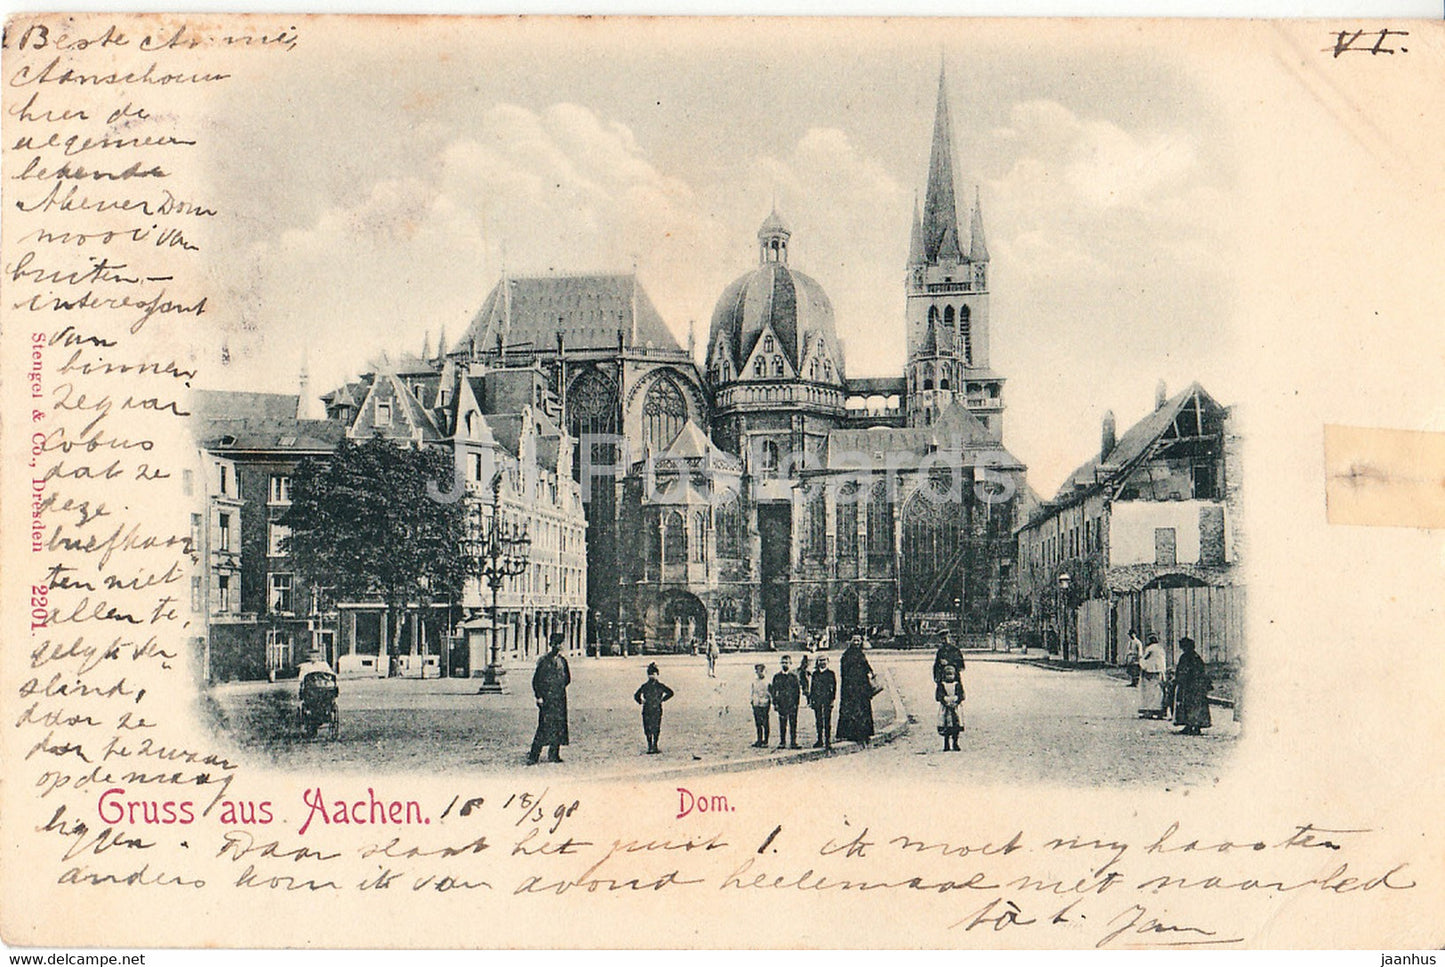 Beste Annie,
Aanschouw
hier de
algemeen
bekende
Akener Dom
mooi van
buiten -
interessant
van
binnen
Zeg aan
Cobus
dat ze
deze
briefkaar
ten niet
allen te,
gelijk ver
slind,
daar ze
dan te zwaar
op de maag
liggen. Daar slaat het juist 1. ik moet mij haasten
anders kom ik van avond heelemaal niet naar bed
Jan
VI.
Stengel & Co., Dresden 2201.
Gruss aus Aachen. 18/3 98
Dom.
JH Postcards
www.delcampe.net
jaanhus